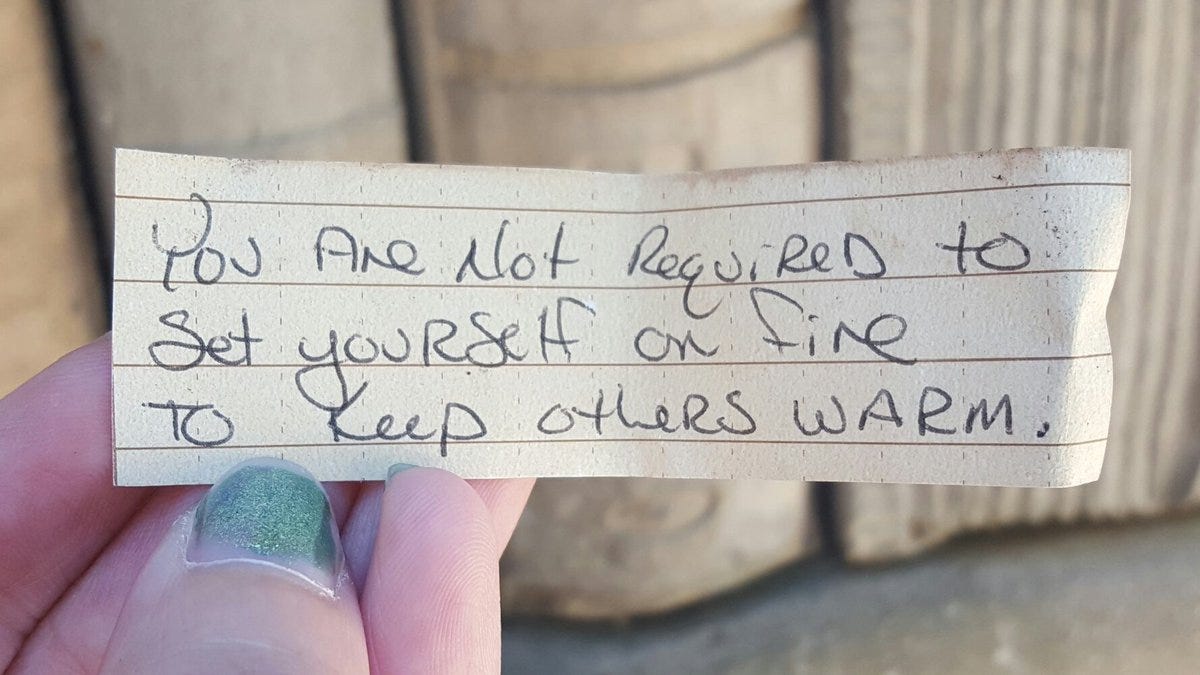 You Are Not Required to
Set yourself on fire
To Keep others WARM.